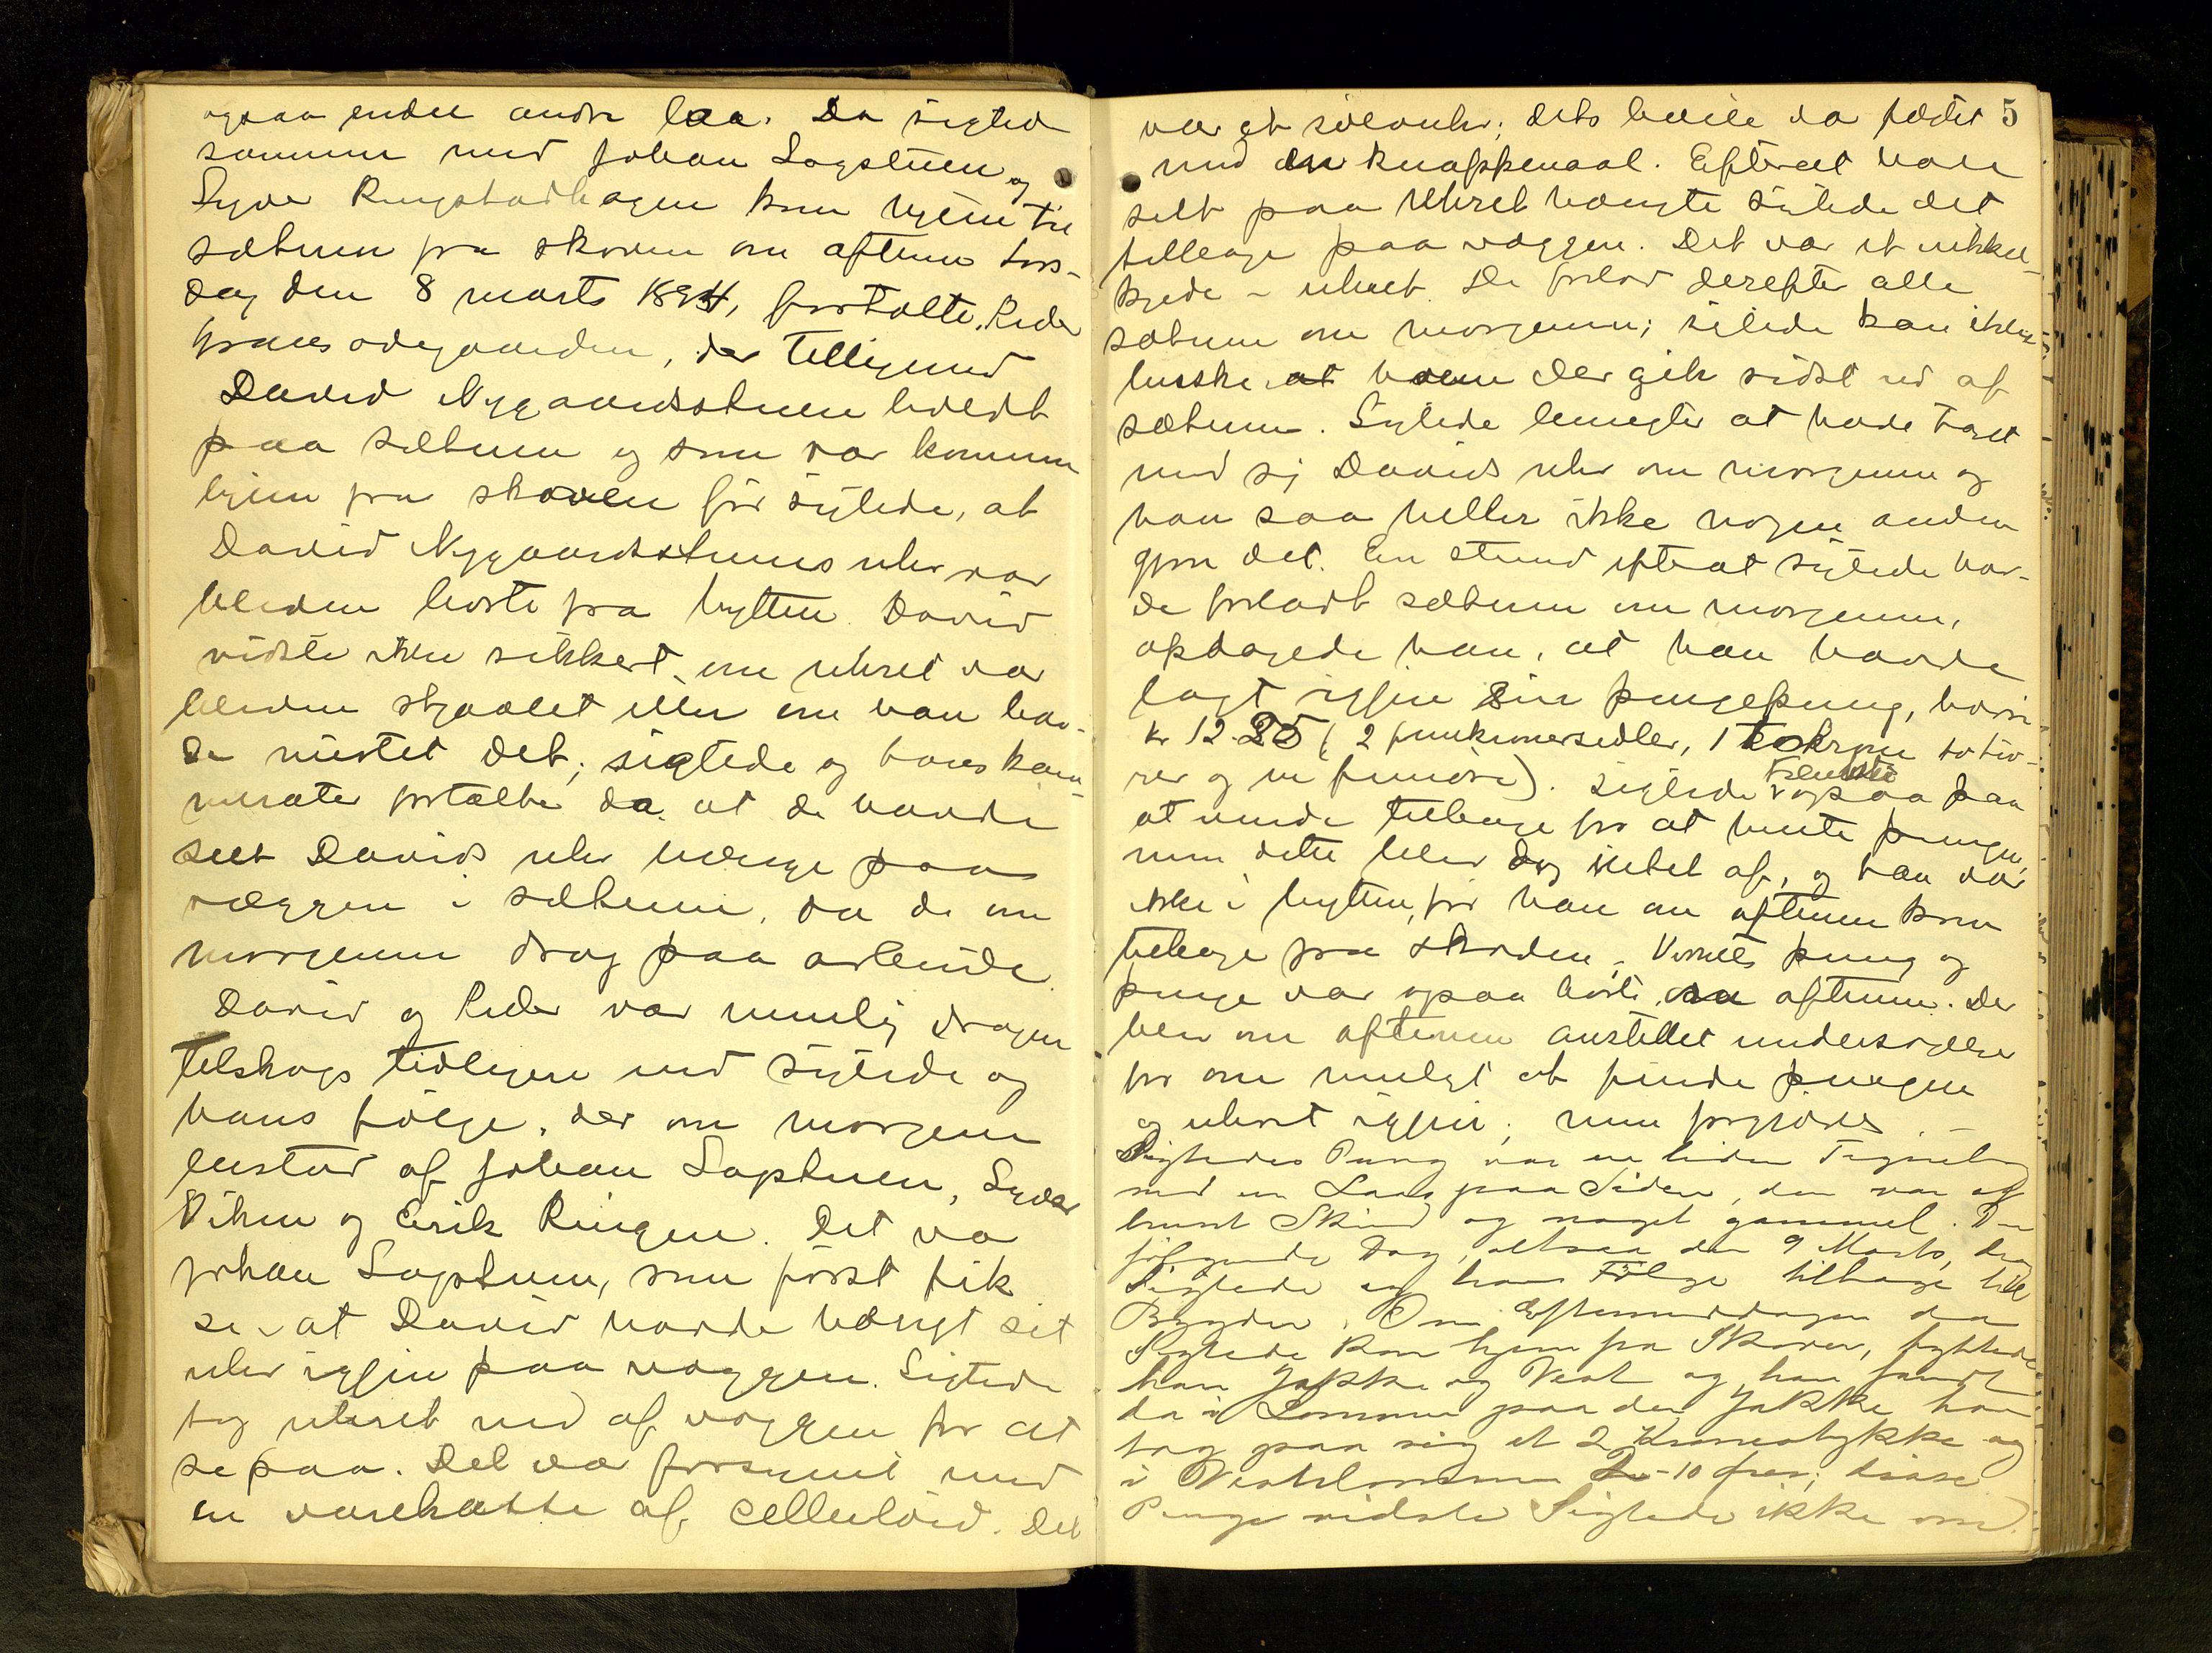 ogsaa endel andre laa. Da sigtede
sammen med Johan Lagstuen og
Syver Ringstadhagen kom hjem til
sæteren fra skoven om aftenen tors-
dag den 8 marts 1894, fortalte Peder
Hansødegaarden, der tilligemed
David Nygaardsstuen holdt
paa sæteren og som var kommen
hjem fra skoven før sigtede, at
David Nygaardsstuens uhr var
bleven borte fra hytten. David
vidste ikke sikkert, om uhret var
bleven stjaalet eller om han hav-
de mistet det; sigtede og hans kam-
merater fortalte da at de havde
seet Davids uhr hænge paa
væggen i sæteren, da de om
morgenen drog paa arbeide.
David og Peder var nemlig dragen
tilskogs tidligere end sigtede og
hans følge, der om morgenen
bestod af Johan Lagstuen, Syver
Viken og Erik Ringen. Det var
Johan Lagstuen, som først fik
se, at David havde hængt sit
uhr igjen paa væggen. Sigtede
tog uhret ned af væggen for at
se paa. Det var forsynet med
en varekatte af celluloid. Det
5
var et sølvuhr; dets bøile var fæstet
med en knappenaal. Efterat have
seet paa uhret hængte sigtede det
tilbage paa væggen. Det var et nikkel-
kjede i uhret. De forlod derefter alle
sæteren om morgenen; sigtede kan ikke
huske at hvem der gik sidst ud af
sæteren. Sigtede benegter at have taget
med sig Davids uhr om morgenen og
han saa heller ikke nogen anden
gjøre det. En stund efterat sigtede hav-
de forladt sæteren om morgenen,
opdagede han, at han havde
lagt igjen sin pengepung, hvori
kr 12.25 (2 femkronersedler, 1 tokrone to tiø-
rer og en femøre). Sigtede tænkte ogsaa paa
at vende tilbage for at hente pungen,
men dette blev dog intet af, og han var
ikke i hytten, før han om aftenen kom
tilbage fra skoven. Vornets pung og
penge var ogsaa borte om aftenen. Der
blev om aftenen anstillet undersøgelse
for om muligt at finde pungen
og uhret igjen; men forgjæves. –
Sigtedes Pung var en liden Tegnebog
med en Laas paa Siden, den var af
brunt Skind og noget gammel. Den
følgende Dag, altsaa den 9 Marts, drog
Sigtede og hans Følge tilbage til
Bygden. Om Eftermiddagen da
Sigtede kom hjem fra Skoven, byttede
han Jakke og Vest og han fandt
da i Lommen paa den Jakke han
tog paa sig et 2 Kronestykke og
i Vestelommen 2-10 ører; disse
Penge vidste Sigtede ikke om